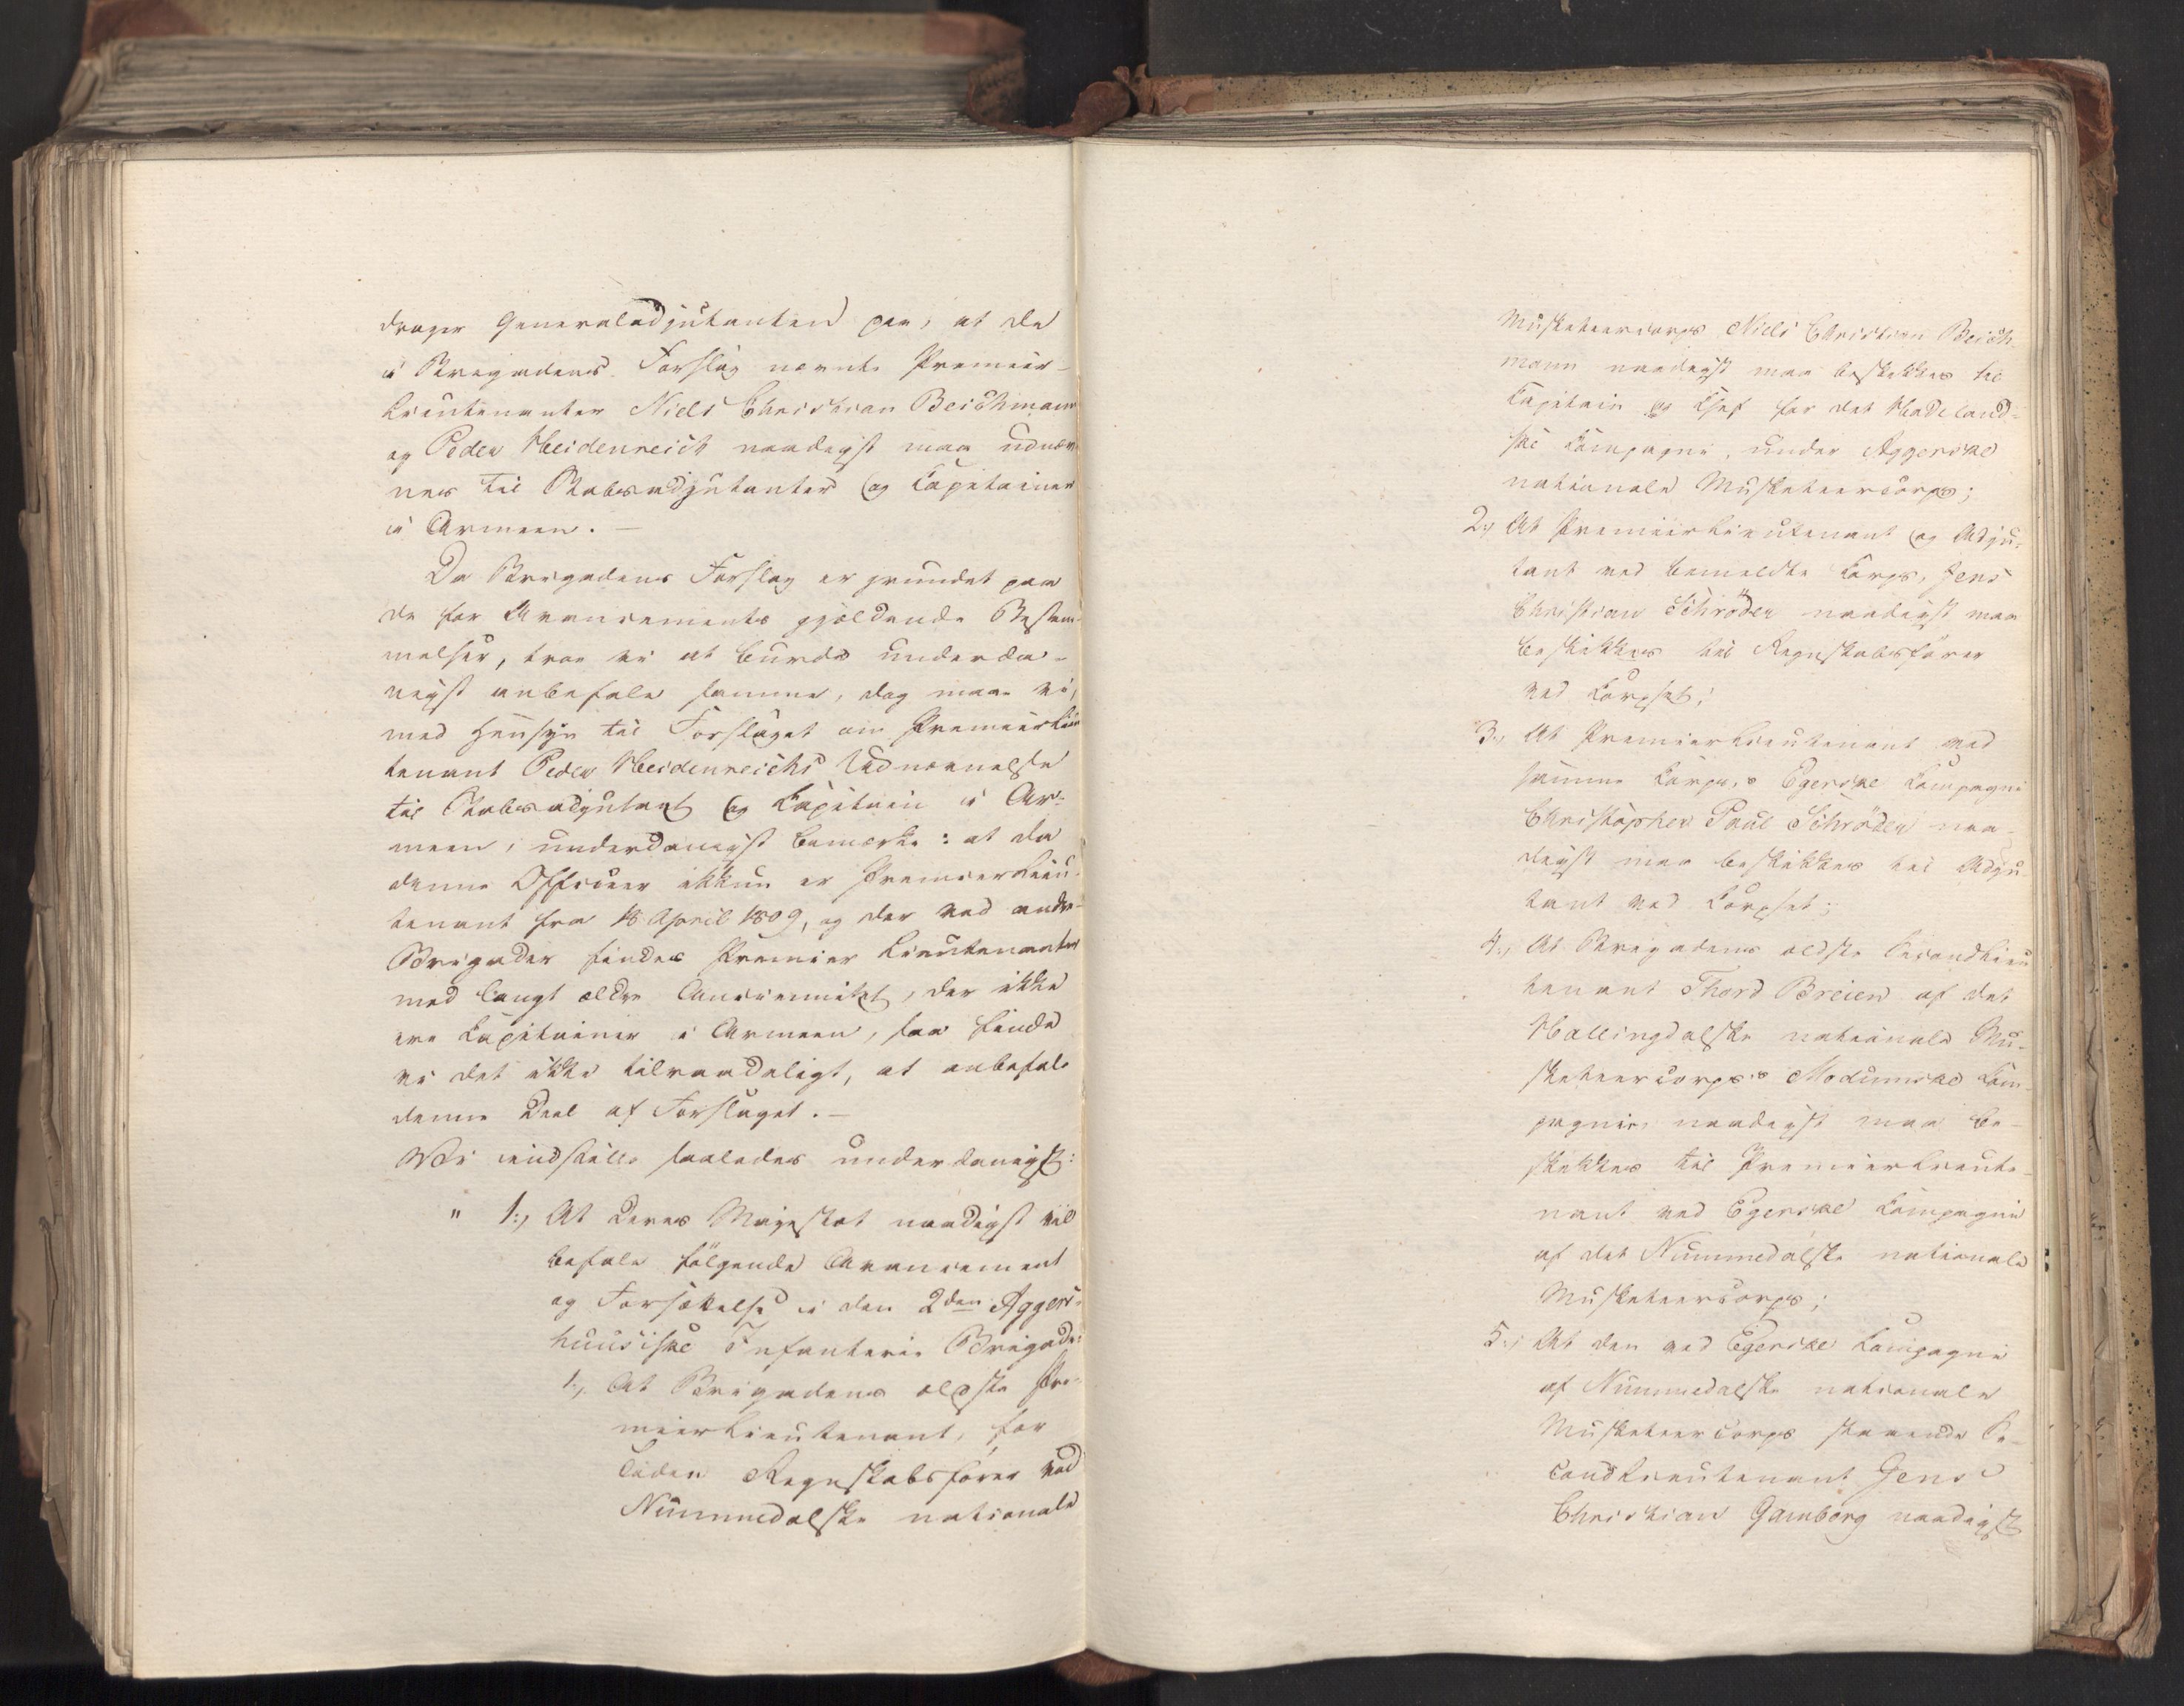 drager Generaladjutanten paa, at de
i Brigadens Forslag nævnte Premier-
lieutenanter Niels Christian Beichmann
og Peder Heidenreich naadigst maa udnæv-
nes til Stabsadjutanter og Capitainer
i Armeen. —
Da Brigadens Forslag er grundet paa
de for Avancements gjældende Bestem-
melser, troe vi at burde underda-
nigst anbefale samme, dog maae vi,
med Hensyn til Forslaget om Premierlieu
tenant Peder Heidenreichs Udnævnelse
til Stabsadjutant og Capitain i Ar-
meen, underdanigst bemærke: at da
denne Officeer ikkun er Premierlieu-
tenant fra 18 April 1809, og der ved andre
Brigader findes Premier Lieutenanter
med langt ældre Anciennitet, der ikke
ere Capitainer i Armeen, saa finde
vi det ikke tilraadeligt, at anbefale
denne Deel af Forslaget. —
Vi indstille saaledes underdanigst:
" 1:, At Deres Majestæt naadigst vil
befale følgende Avancement
og Forsættelse i den 2den Aggers-
huusiske Infanterie Brigade:
1:, At Brigadens ældste Pre-
mierlieutenant, for
tiden Regnskabsfører ved
Nummedalske nationale
Musketeercorps Niels Christian Beich
mann naadigst maa beskikkes til
Capitain og Chef for det Hadeland-
ske Compagnie, under Aggerske
nationale Musketeercorps;
2:, At Premierlieutenant og Adju-
tant ved bemeldte Corps, Jens
Christian Schröder naadigst maa
beskikkes til Regnskabsfører
ved Corpset;
3:, At Premierlieutenant ved
samme Corps's Egerske Compagnie
Christopher Paul Schröder naa-
digst maa beskikkes til Adju-
tant ved Corpset;
4:, At Brigadens ældste Secondlieu
tenant Thord Breien af det
Hallingdalske nationale Mu-
sketeercorps's Modumske Com-
pagnie, naadigst maa be-
skikkes til Premierlieute-
nant ved Egerske Compagnie
af det Nummedalske nationale
Musketeercorps;
5:, At den ved Egerske Compagnie
af Nummedalske nationale
Musketeercorps staaende Se-
condlieutenant Jens
Christian Gamborg naadigst